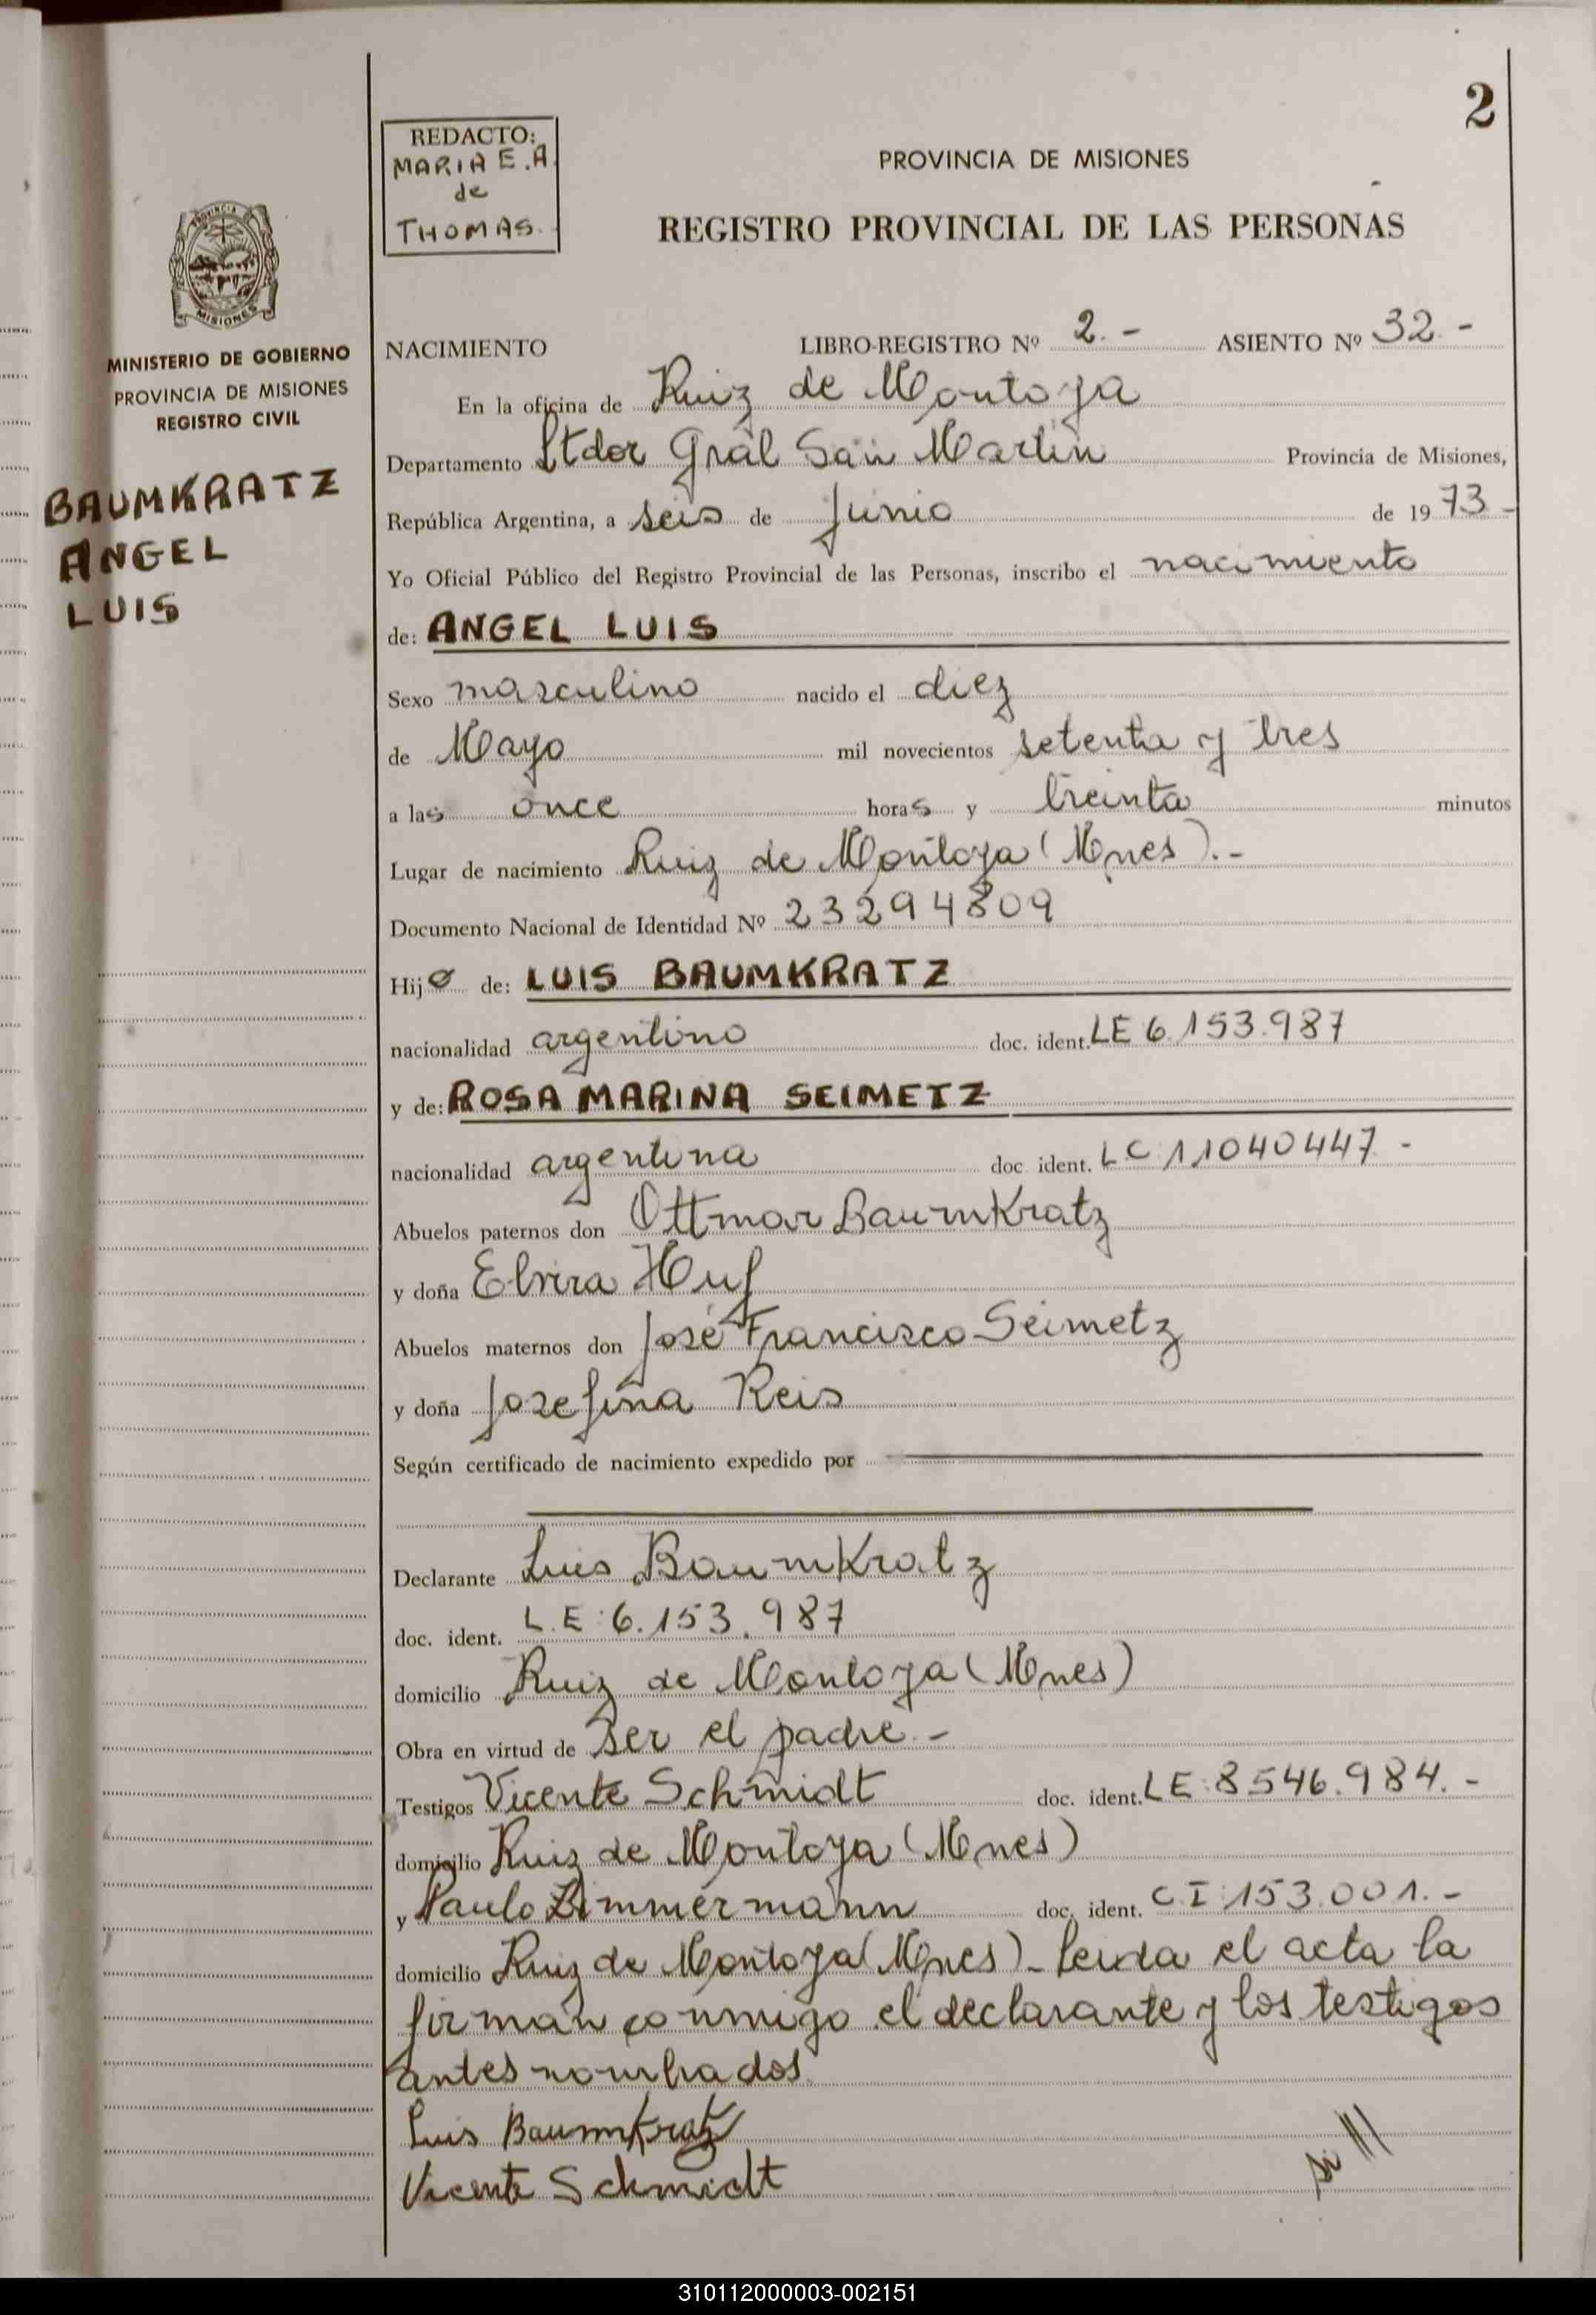 2
REDACTO:
MARIA E. A.
de
THOMAS.
PROVINCIA DE MISIONES
REGISTRO PROVINCIAL DE LAS PERSONAS
PROVINCIA
MISIONES
MINISTERIO DE GOBIERNO
PROVINCIA DE MISIONES
REGISTRO CIVIL
BAUMKRATZ
ANGEL
LUIS
NACIMIENTO LIBRO-REGISTRO Nº 2.- ASIENTO Nº 32-
En la oficina de Ruiz de Montoya
Departamento Ltdor Gral San Martin Provincia de Misiones,
República Argentina, a seis de Junio de 1973-
Yo Oficial Público del Registro Provincial de las Personas, inscribo el nacimiento
de: ANGEL LUIS
Sexo masculino nacido el diez
de Mayo mil novecientos setenta y tres
a las once horas y treinta minutos
Lugar de nacimiento Ruiz de Montoya (Mnes).-
Documento Nacional de Identidad Nº 23294809
Hijo de: LUIS BAUMKRATZ
nacionalidad argentino doc. ident. LE 6.153.987
y de: ROSA MARINA SEIMETZ
nacionalidad argentina doc. ident. LC 11040447-
Abuelos paternos don Ottmar BaumKratz
y doña Elvira Huf
Abuelos maternos don José Francisco Seimetz
y doña Josefina Reis
Según certificado de nacimiento expedido por
Declarante Luis BaumKratz
doc. ident. L.E: 6.153.987
domicilio Ruiz de Montoya (Mnes)
Obra en virtud de ser el padre.-
Testigos Vicente Schmidt doc. ident. LE: 8546.984.-
domicilio Ruiz de Montoya (Mnes)
y Paulo Zimmermann doc. ident. C I 153.001.-
domicilio Ruiz de Montoya (Mnes)- Leida el acta la
firman conmigo el declarante y los testigos
antes nombrados.
Luis Baumkratz
Vicente Schmidt
310112000003-002151